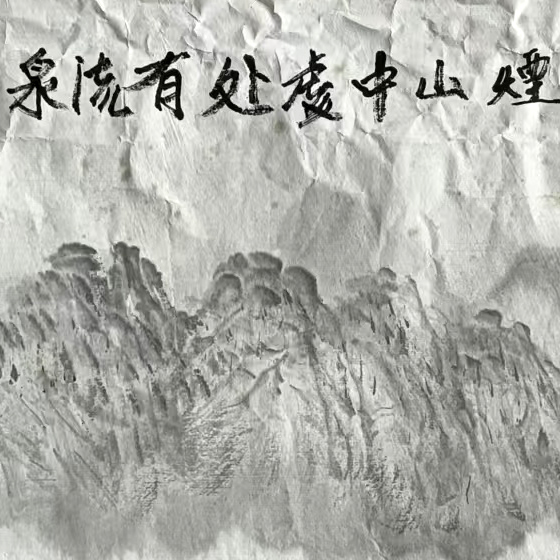 煙山中處处有流泉